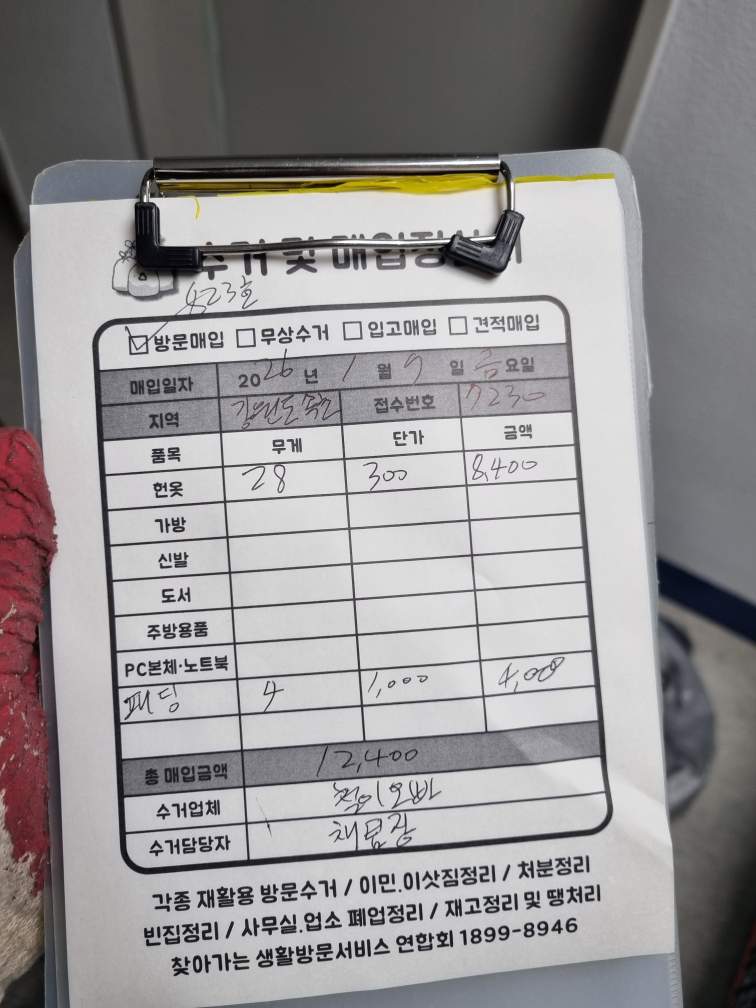 수거 및 매입정산서
423호
☑방문매입 □무상수거 □입고매입 □견적매입
매입일자 2026년 1월 9일 금요일
지역 강원도속초 접수번호 7230
품목 무게 단가 금액
헌옷 28 300 8,400
가방
신발
도서
주방용품
PC본체·노트북
패딩 4 1,000 4,000
총 매입금액 12,400
수거업체
수거담당자
각종 재활용 방문수거 / 이민.이삿짐정리 / 처분정리
빈집정리 / 사무실.업소 폐업정리 / 재고정리 및 땡처리
찾아가는 생활방문서비스 연합회 1899-8946